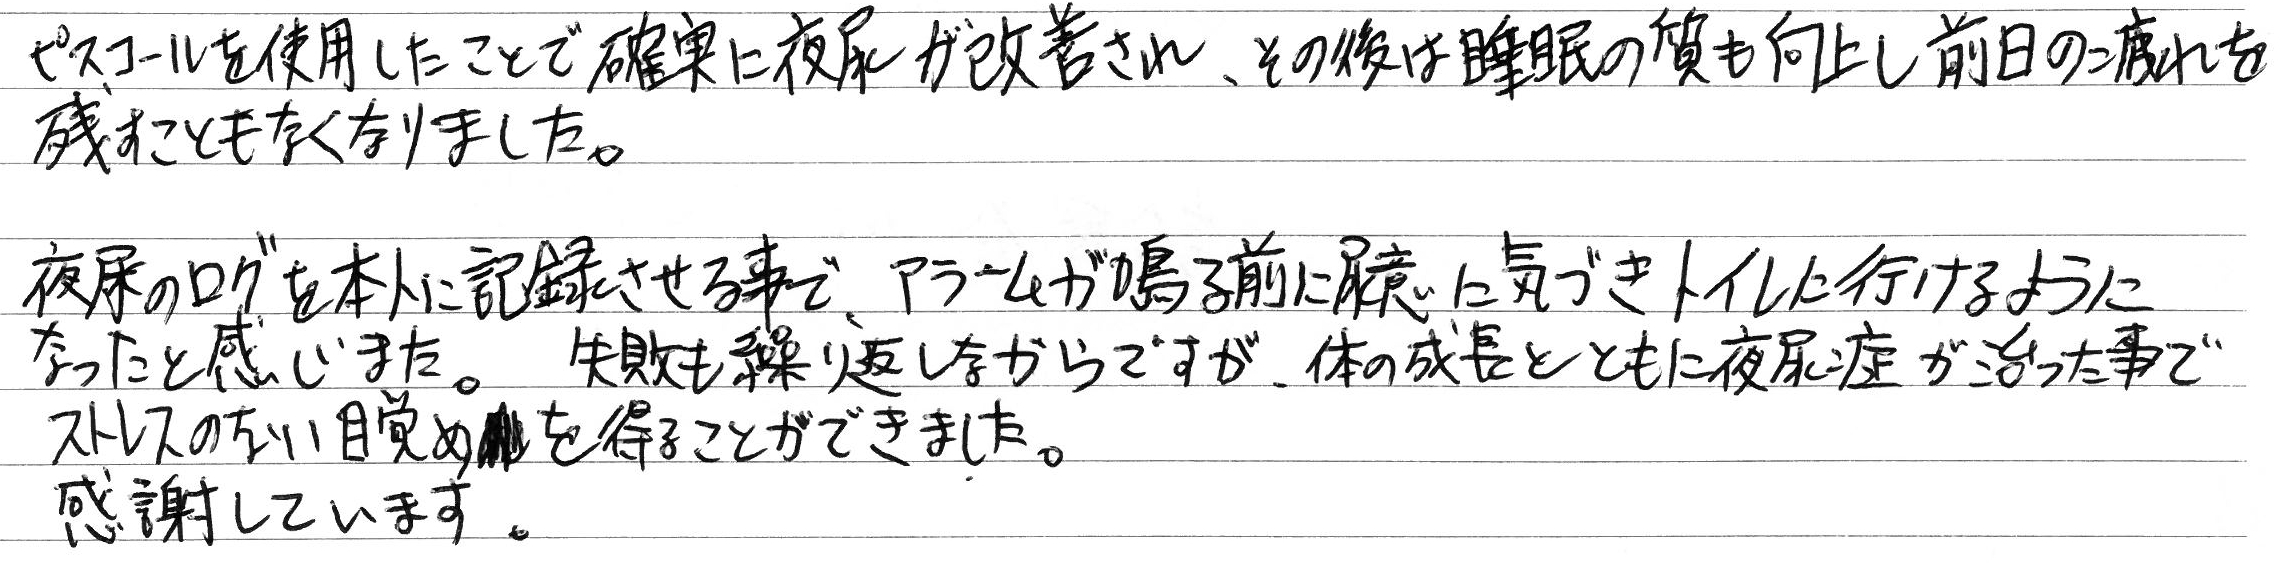 ピスコールを使用したことで確実に夜尿が改善され、その後は睡眠の質も向上し前日の疲れを
残すこともなくなりました。
夜尿のログを本人に記録させる事で、アラームが鳴る前に尿意に気づきトイレに行けるように
なったと感じまた。 失敗も繰り返しながらですが、体の成長とともに夜尿症が治った事で
ストレスのない目覚めを得ることができました。
感謝しています。